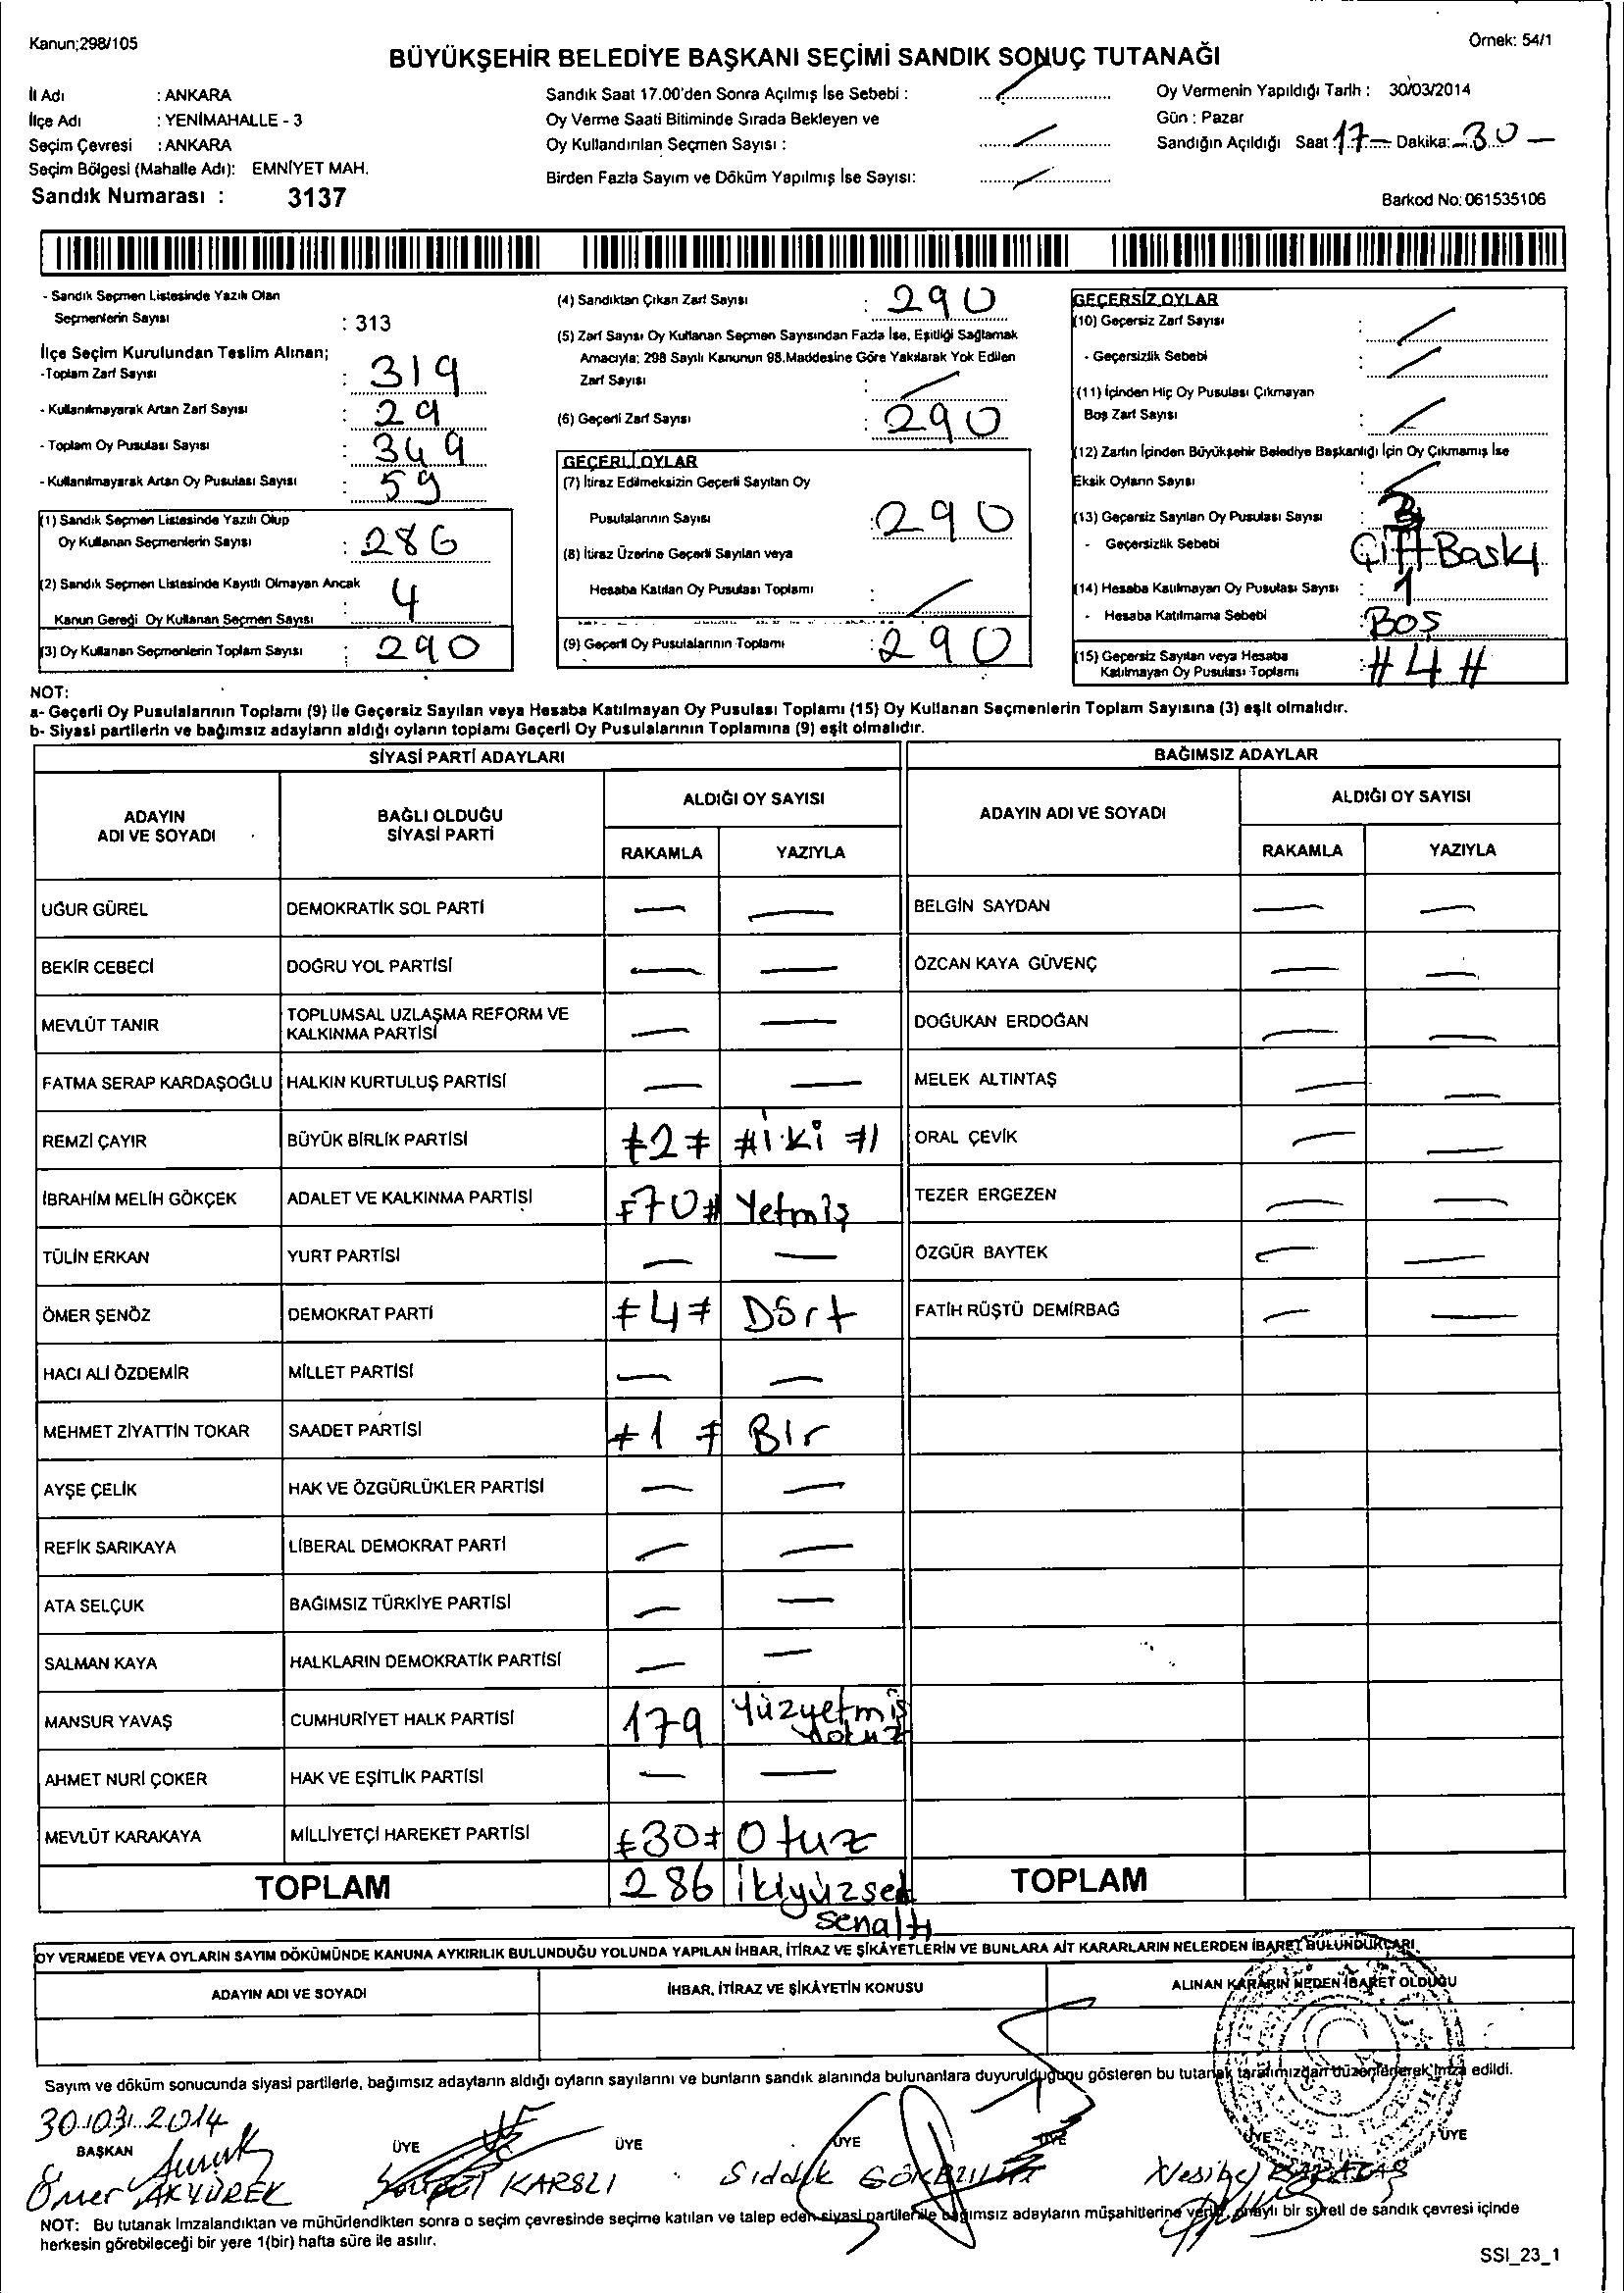 Kanun;298/105
Örnek: 54/1
BÜYÜKŞEHİR BELEDİYE BAŞKANI SEÇİMİ SANDIK SONUÇ TUTANAĞI
İl Adı : ANKARA
İlçe Adı : YENİMAHALLE - 3
Seçim Çevresi : ANKARA
Seçim Bölgesi (Mahalle Adı): EMNİYET MAH.
Sandık Numarası : 3137
Sandık Saat 17.00'den Sonra Açılmış İse Sebebi :
Oy Verme Saati Bitiminde Sırada Bekleyen ve
Oy Kullandırılan Seçmen Sayısı :
Birden Fazla Sayım ve Döküm Yapılmış İse Sayısı:
Oy Vermenin Yapıldığı Tarih : 30/03/2014
Gün : Pazar
Sandığın Açıldığı Saat 17 Dakika: 30
Barkod No: 061535106
- Sandık Seçmen Listesinde Yazılı Olan
Seçmenlerin Sayısı : 313
İlçe Seçim Kurulundan Teslim Alınan;
-Toplam Zarf Sayısı : 319
- Kullanılmayarak Artan Zarf Sayısı : 29
- Toplam Oy Pusulası Sayısı : 349
- Kullanılmayarak Artan Oy Pusulası Sayısı : 59
(1) Sandık Seçmen Listesinde Yazılı Olup
Oy Kullanan Seçmenlerin Sayısı : 286
(2) Sandık Seçmen Listesinde Kayıtlı Olmayan Ancak
Kanun Gereği Oy Kullanan Seçmen Sayısı : 4
(3) Oy Kullanan Seçmenlerin Toplam Sayısı : 290
(4) Sandıktan Çıkan Zarf Sayısı : 290
(5) Zarf Sayısı Oy Kullanan Seçmen Sayısından Fazla İse, Eşitliği Sağlamak
Amacıyla; 298 Sayılı Kanunun 98.Maddesine Göre Yakılarak Yok Edilen
Zarf Sayısı :
(6) Geçerli Zarf Sayısı : 290
GEÇERLİ OYLAR
(7) İtiraz Edilmeksizin Geçerli Sayılan Oy
Pusulalarının Sayısı : 290
(8) İtiraz Üzerine Geçerli Sayılan veya
Hesaba Katılan Oy Pusulası Toplamı :
(9) Geçerli Oy Pusulalarının Toplamı : 290
GEÇERSİZ OYLAR
(10) Geçersiz Zarf Sayısı :
- Geçersizlik Sebebi :
(11) İçinden Hiç Oy Pusulası Çıkmayan
Boş Zarf Sayısı :
(12) Zarfın İçinden Büyükşehir Belediye Başkanlığı İçin Oy Çıkmamış İse
Eksik Oyların Sayısı :
(13) Geçersiz Sayılan Oy Pusulası Sayısı : 3
- Geçersizlik Sebebi Çift Baskı
(14) Hesaba Katılmayan Oy Pusulası Sayısı : 1
- Hesaba Katılmama Sebebi : Boş
(15) Geçersiz Sayılan veya Hesaba
Katılmayan Oy Pusulası Toplamı : # 4 #
NOT:
a- Geçerli Oy Pusulalarının Toplamı (9) ile Geçersiz Sayılan veya Hesaba Katılmayan Oy Pusulası Toplamı (15) Oy Kullanan Seçmenlerin Toplam Sayısına (3) eşit olmalıdır.
b- Siyasi partilerin ve bağımsız adayların aldığı oyların toplamı Geçerli Oy Pusulalarının Toplamına (9) eşit olmalıdır.
SİYASİ PARTİ ADAYLARI
BAĞIMSIZ ADAYLAR
ADAYIN
ADI VE SOYADI
BAĞLI OLDUĞU
SİYASİ PARTİ
ALDIĞI OY SAYISI
RAKAMLA YAZIYLA
ADAYIN ADI VE SOYADI
ALDIĞI OY SAYISI
RAKAMLA YAZIYLA
UĞUR GÜREL DEMOKRATİK SOL PARTİ — — BELGİN SAYDAN — —
BEKİR CEBECİ DOĞRU YOL PARTİSİ — — ÖZCAN KAYA GÜVENÇ — —
MEVLÜT TANIR TOPLUMSAL UZLAŞMA REFORM VE
KALKINMA PARTİSİ — — DOĞUKAN ERDOĞAN — —
FATMA SERAP KARDAŞOĞLU HALKIN KURTULUŞ PARTİSİ — — MELEK ALTINTAŞ — —
REMZİ ÇAYIR BÜYÜK BİRLİK PARTİSİ ≠2≠ #İki # ORAL ÇEVİK — —
İBRAHİM MELİH GÖKÇEK ADALET VE KALKINMA PARTİSİ ≠70# Yetmiş TEZER ERGEZEN — —
TÜLİN ERKAN YURT PARTİSİ — — ÖZGÜR BAYTEK — —
ÖMER ŞENÖZ DEMOKRAT PARTİ ≠4≠ Dört FATİH RÜŞTÜ DEMİRBAĞ — —
HACI ALİ ÖZDEMİR MİLLET PARTİSİ — —
MEHMET ZİYATTİN TOKAR SAADET PARTİSİ ≠1≠ Bir
AYŞE ÇELİK HAK VE ÖZGÜRLÜKLER PARTİSİ — —
REFİK SARIKAYA LİBERAL DEMOKRAT PARTİ — —
ATA SELÇUK BAĞIMSIZ TÜRKİYE PARTİSİ — —
SALMAN KAYA HALKLARIN DEMOKRATİK PARTİSİ — —
MANSUR YAVAŞ CUMHURİYET HALK PARTİSİ 179 Yüzyetmiş
dokuz
AHMET NURİ ÇOKER HAK VE EŞİTLİK PARTİSİ — —
MEVLÜT KARAKAYA MİLLİYETÇİ HAREKET PARTİSİ ≠30≠ Otuz
TOPLAM 286 İkiyüzsek
senaltı
TOPLAM
OY VERMEDE VEYA OYLARIN SAYIM DÖKÜMÜNDE KANUNA AYKIRILIK BULUNDUĞU YOLUNDA YAPILAN İHBAR, İTİRAZ VE ŞİKÂYETLERİN VE BUNLARA AİT KARARLARIN NELERDEN İBARET BULUNDUKLARI
ADAYIN ADI VE SOYADI İHBAR, İTİRAZ VE ŞİKÂYETİN KONUSU ALINAN KARARIN NEDEN İBARET OLDUĞU
Sayım ve döküm sonucunda siyasi partilerle, bağımsız adayların aldığı oyların sayılarını ve bunların sandık alanında bulunanlara duyurulduğunu gösteren bu tutanak tarafımızdan düzenlenerek imza edildi.
30.03.2014
BAŞKAN ÜYE ÜYE ÜYE ÜYE ÜYE ÜYE
Ömer AKYÜREK KARSLI Sıddık Nesibe
NOT: Bu tutanak imzalandıktan ve mühürlendikten sonra o seçim çevresinde seçime katılan ve talep eden siyasi partiler ile bağımsız adayların müşahitlerine verilir, onaylı bir sureti de sandık çevresi içinde
herkesin görebileceği bir yere 1(bir) hafta süre ile asılır.
SSI_23_1